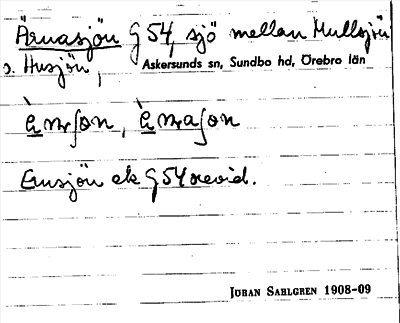 Ärnasjön G 54, sjö mellan Mullsjön
o. Husjön, Askersunds sn, Sundbo hd, Örebro län
Ensjön ek G 54 revid.
JOHAN SAHLGREN 1908-09